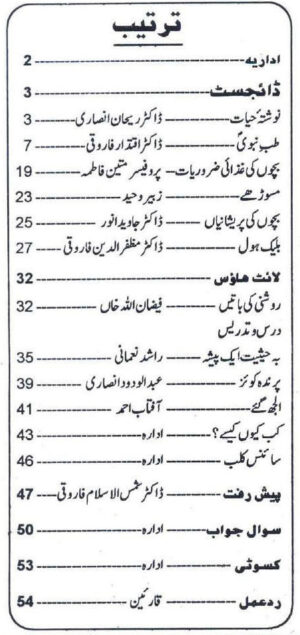 ترتیب
اداریہ ---------------- 2
ڈائجسٹ ---------------- 3
نوشتۂ حیات -------- ڈاکٹر ریحان انصاری -------- 3
طب نبویؐ -------- ڈاکٹر اقتدار فاروقی -------- 7
بچوں کی غذائی ضروریات -- پروفیسر متین فاطمہ -------- 19
مسوڑھے -------- زبیر وحید -------- 23
بچوں کی پریشانیاں -------- ڈاکٹر جاوید انور -------- 25
بلیک ہول -------- ڈاکٹر مظفرالدین فاروقی -------- 27
لائٹ ہاؤس ---------------- 32
روشنی کی باتیں -------- فیضان اللہ خاں -------- 32
درس و تدریس
بہ حیثیت ایک پیشہ -------- راشد نعمانی -------- 35
پرندہ کوئز -------- عبدالودود انصاری -------- 39
الجھ گئے -------- آفتاب احمد -------- 41
کب کیوں کیسے؟ -------- ادارہ -------- 43
سائنس کلب -------- ادارہ -------- 46
پیش رفت -------- ڈاکٹر شمس الاسلام فاروقی -------- 47
سوال جواب -------- ادارہ -------- 50
کسوٹی -------- ادارہ -------- 53
ردعمل -------- قارئین -------- 54